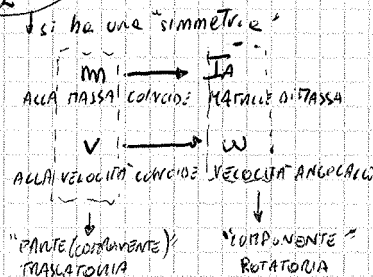 si ha una "simmetria"
m → IA
ALLA MASSA COINCIDE MATRICE DI MASSA
v → ω
ALLA VELOCITÀ COINCIDE VELOCITÀ ANGOLARE
"PARTE (COMPONENTE)" "COMPONENTE"
TRASLATORIA ROTATORIA